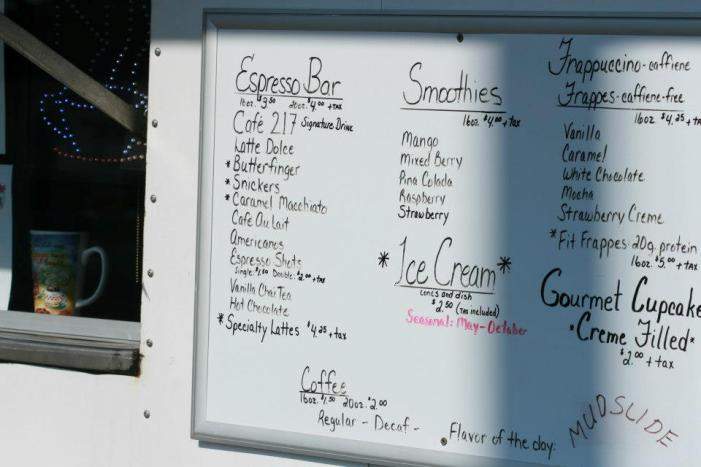 Espresso Bar
16oz. $3.50 20oz. $4.00 + tax
Café 217 Signature Drink
Latte Dolce
*Butterfinger
*Snickers
*Caramel Macchiato
Café Au Lait
Americanos
Espresso Shots
Single: $1.00 Double: $2.00 + tax
Vanilla Chai Tea
Hot Chocolate
*Specialty Lattes $4.25 + tax
Coffee
16oz. $1.50 20oz. $2.00
Regular - Decaf -
Smoothies
16oz. $4.00 + tax
Mango
Mixed Berry
Pina Colada
Raspberry
Strawberry
*Ice Cream*
cones and dish
$2.50 (tax included)
Seasonal: May-October
Frappuccino-caffiene
Frappes-caffiene-free
16oz. $4.25 + ta
Vanilla
Caramel
White Chocolate
Mocha
Strawberry Creme
*Fit Frappes-20g. protein
16oz. $5.00 + tax
Gourmet Cupcake
*Creme Filled*
$2.00 + tax
Flavor of the day:
MUDSLIDE